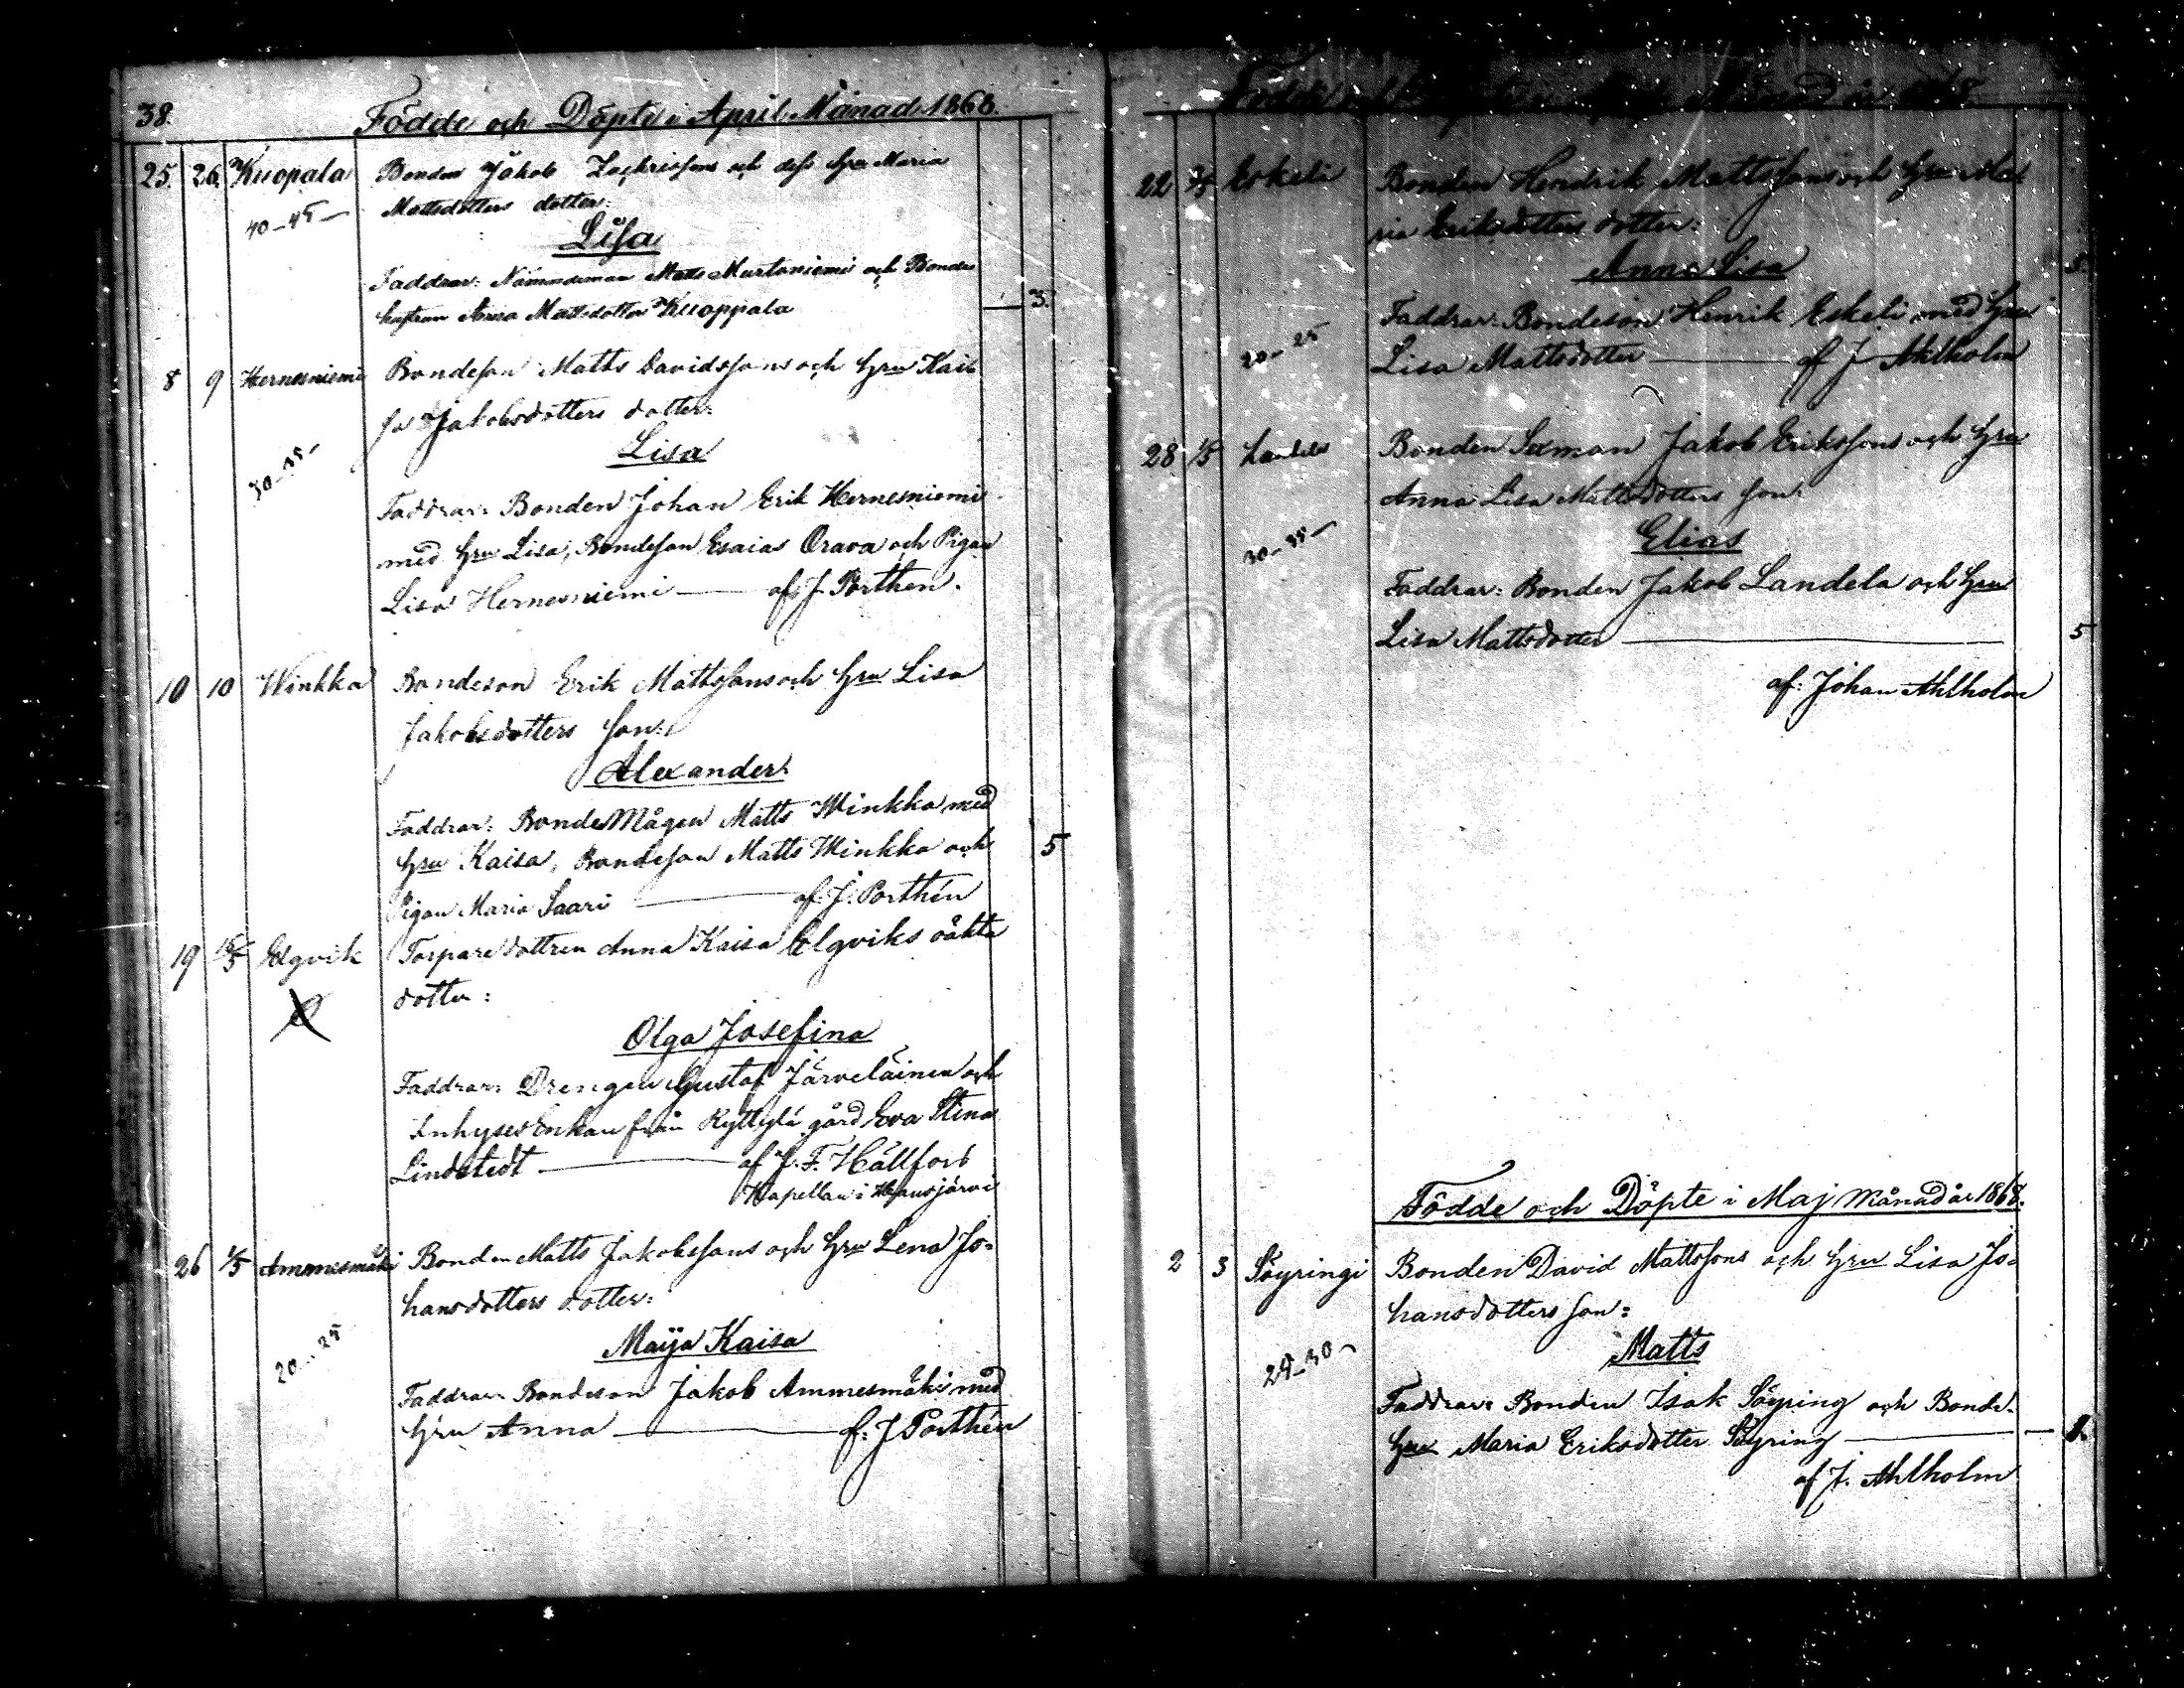 38.
Födde och Döpte i April Månad 1868.
25. 26. Kuopala Bonden Jakob Zachrissons och dess hru Maria
40-45 Mattsdotters dotter:
Lisa
Faddrar: Nämndeman Matts Murtoniemi och Bonde
hustrun Anna Mattsdotter Kuoppala 3.
8 9 Hernesniemi Bondeson Matts Davidssons och hru Kai-
sa Jakobsdotters dotter:
30-35 Lisa
Faddrar: Bonden Johan Erik Hernesniemi
med hru Lisa, Bondeson Esaias Orava och Pigan
Lisa Hernesniemi af J. Porthen.
10 10 Winkka Bondeson Erik Mattssons och hru Lisa
Jakobsdotters son:
Alexander
Faddrar: BondeMågen Matts Winkka med
hru Kaisa, Bondeson Matts Winkka och 5
Pigan Maria Saari af: J: Porthén
19 Elgvik Torparedottren Anna Kaisa Elgviks oäkta
dotter:
Olga Josefina
Faddrar: Drengen Gustaf Järveläinen och
InhysesEnkan från Ryttylä gård Eva Stina
Lindstedt af J. F. Hällfors
Kapellan i Hausjärvi
26 1/5 Ammesmäki Bonden Matts Jakobssons och hru Lena Jo-
hansdotters dotter:
20-25 Maija Kaisa
Faddrar: Bondeson Jakob Ammesmäki med
hru Anna af: J Porthén
22 Eskeli Bonden Hendrik Mattssons och hru Ma-
ria Eriksdotters dotter:
Anna Lisa 5
Faddrar: Bondeson Henrik Eskeli med hru
20-25 Lisa Mattsdotter af J Ahlholm
28 1/5 Landela Bonden Sexman Jakob Erikssons och hru
Anna Lisa Mattsdotters son:
30-35 Elias
Faddrar: Bonden Jakob Landela och hru
Lisa Mattsdotter 5
af: Johan Ahlholm
Födde och Döpte i Maj månad år 1868.
2 3 Söyringi Bonden David Mattssons och hru Lisa Jo-
hansdotters son:
Matts
Faddrar: Bonden Isak Söyring och Bonde-
hru Maria Eriksdotter Söyring
af J. Ahlholm